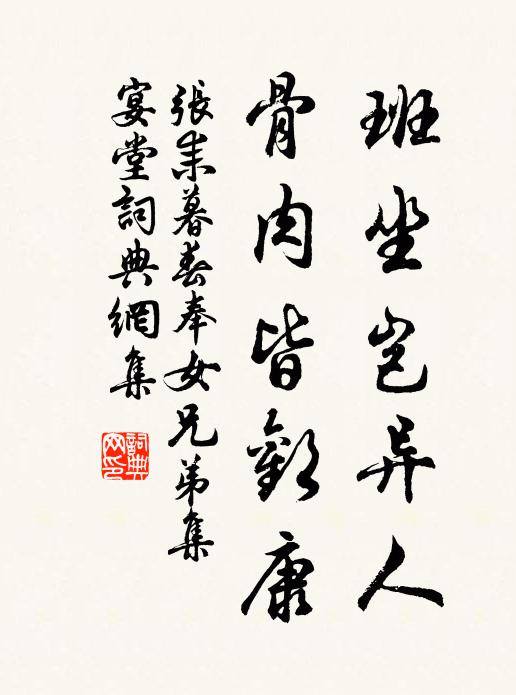 班坐岂异人
骨肉皆歡康
張耒暮春奉女兄弟集
宴堂詞典網集
詞典
网印